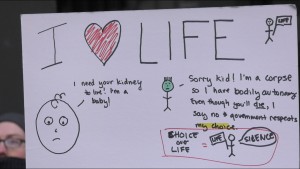 I ♥ LIFE
LIFE
I need your kidney
to live! I'm a
baby!
Sorry kid! I'm a corpse
so I have bodily autonomy
Even though you'll die, I
say no & government respects
my choice.
CHOICE
over
LIFE
=
LIFE
SILENCE